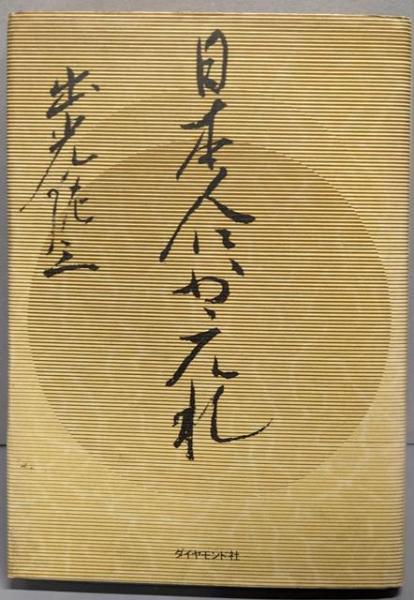 日本人にかえれ
出光佐三
ダイヤモンド社